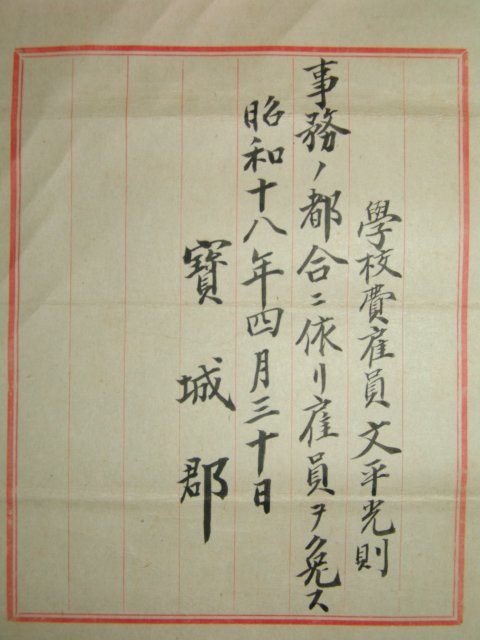 學校費雇員 文平光則
事務ノ都合ニ依リ雇員ヲ免ス
昭和十八年四月三十日
寶城郡